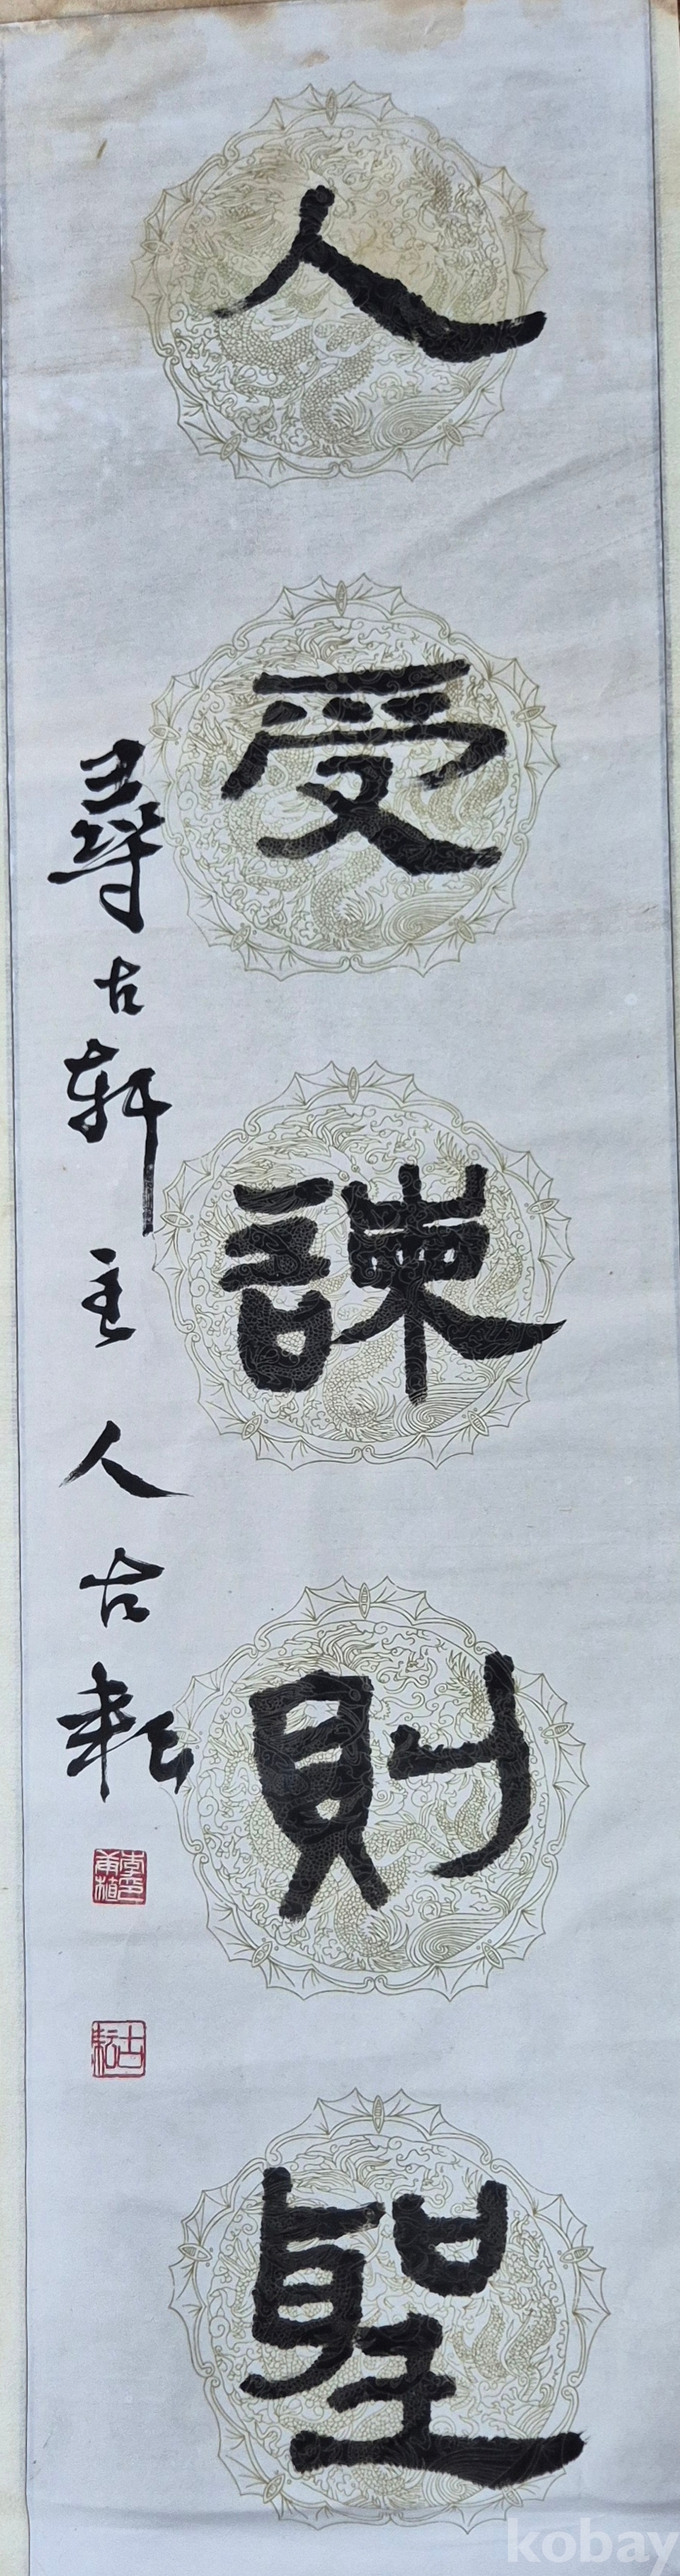 人受諫則聖
尋古軒主人古耘
李甫植印
古耘
kobay